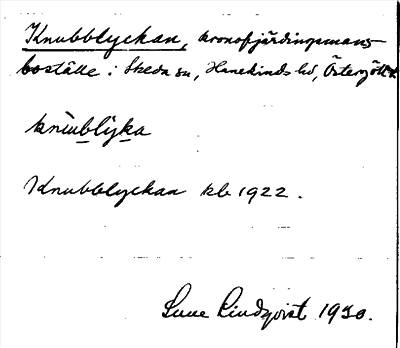 Knubblyckan, kronofjärdingsmans-
boställe i Skeda sn, Hanekinds hd, Östergötl.
knub̲blyk̲a
Knubblyckan kb 1922.
Sune Lindqvist 1930.